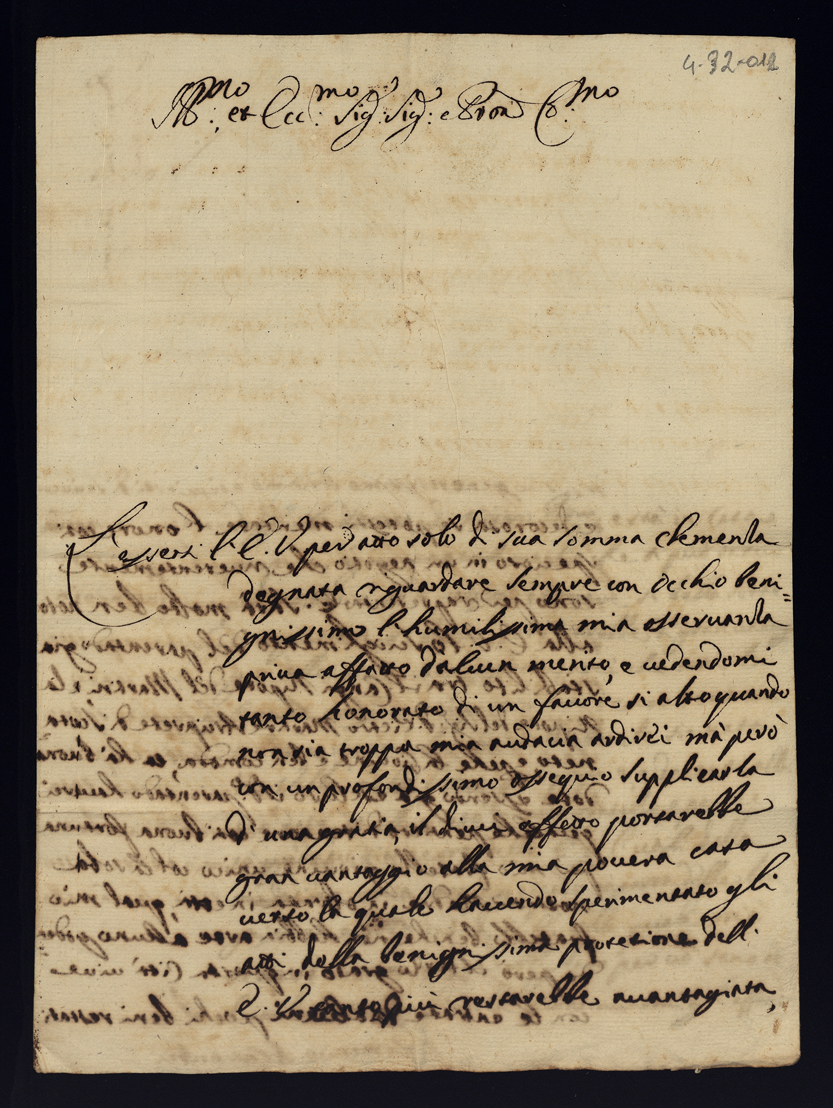 4-32-012
Ill:mo et Ecc:mo Sig: Sig: e Pron Co:mo
L'essersi l'E. V. per atto solo di sua somma clemenza
degnata riguardare sempre con occhio beni=
gnissimo l'humilissima mia osservanza
priva affatto d'alcun merito, e vedendomi
tanto honorato di un favore si alto quando
non sia troppa mia audacia ardirei mà però
con un profondissimo ossequio supplicarla
d'una gratia, il di cui effetto portarebbe
gran vantaggio alla mia povera casa
verso la quale havendo sperimentato gli
atti della benignissima protetione dell'
E. V. tanto più restarebbe avantagiata,